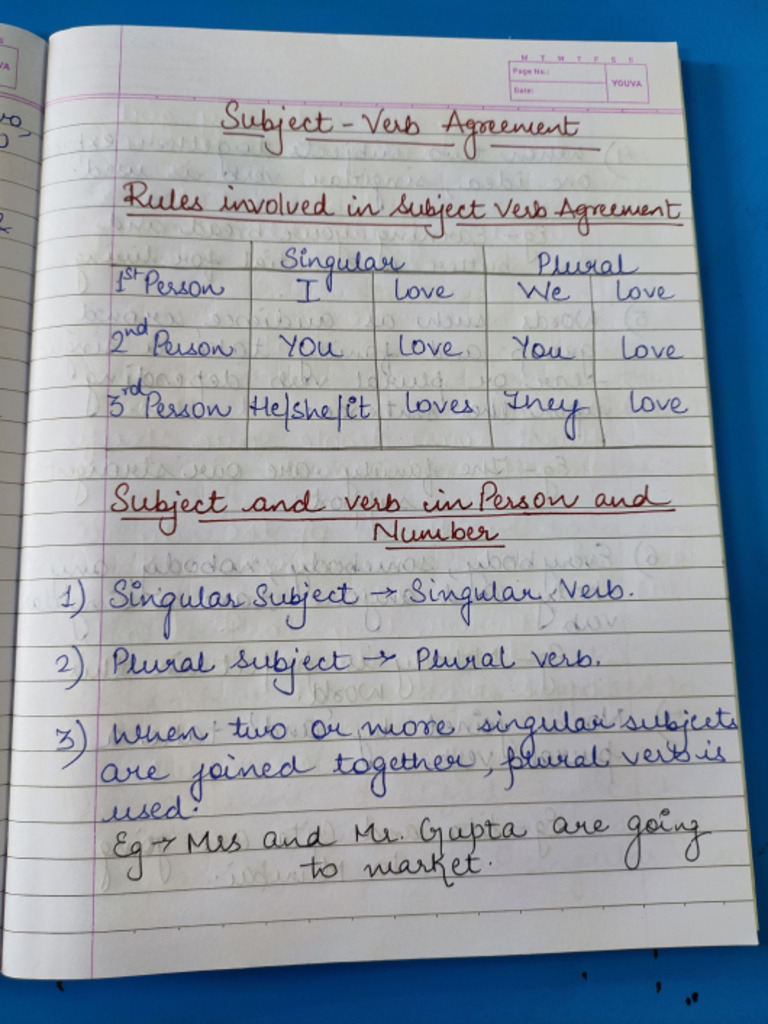 M T W T F S S
Page No.:
YOUVA
Date:
Subject - Verb Agreement
Rules involved in Subject Verb Agreement
Singular Plural
1st Person I Love We Love
2nd Person You Love You Love
3rd Person He/She/it Loves They Love
Subject and verb in Person and
Number
1) Singular Subject → Singular Verb.
2) Plural Subject → Plural verb.
3) When two or more singular subjects
are joined together, plural verb is
used.
Eg → Mrs and Mr. Gupta are going
to market.